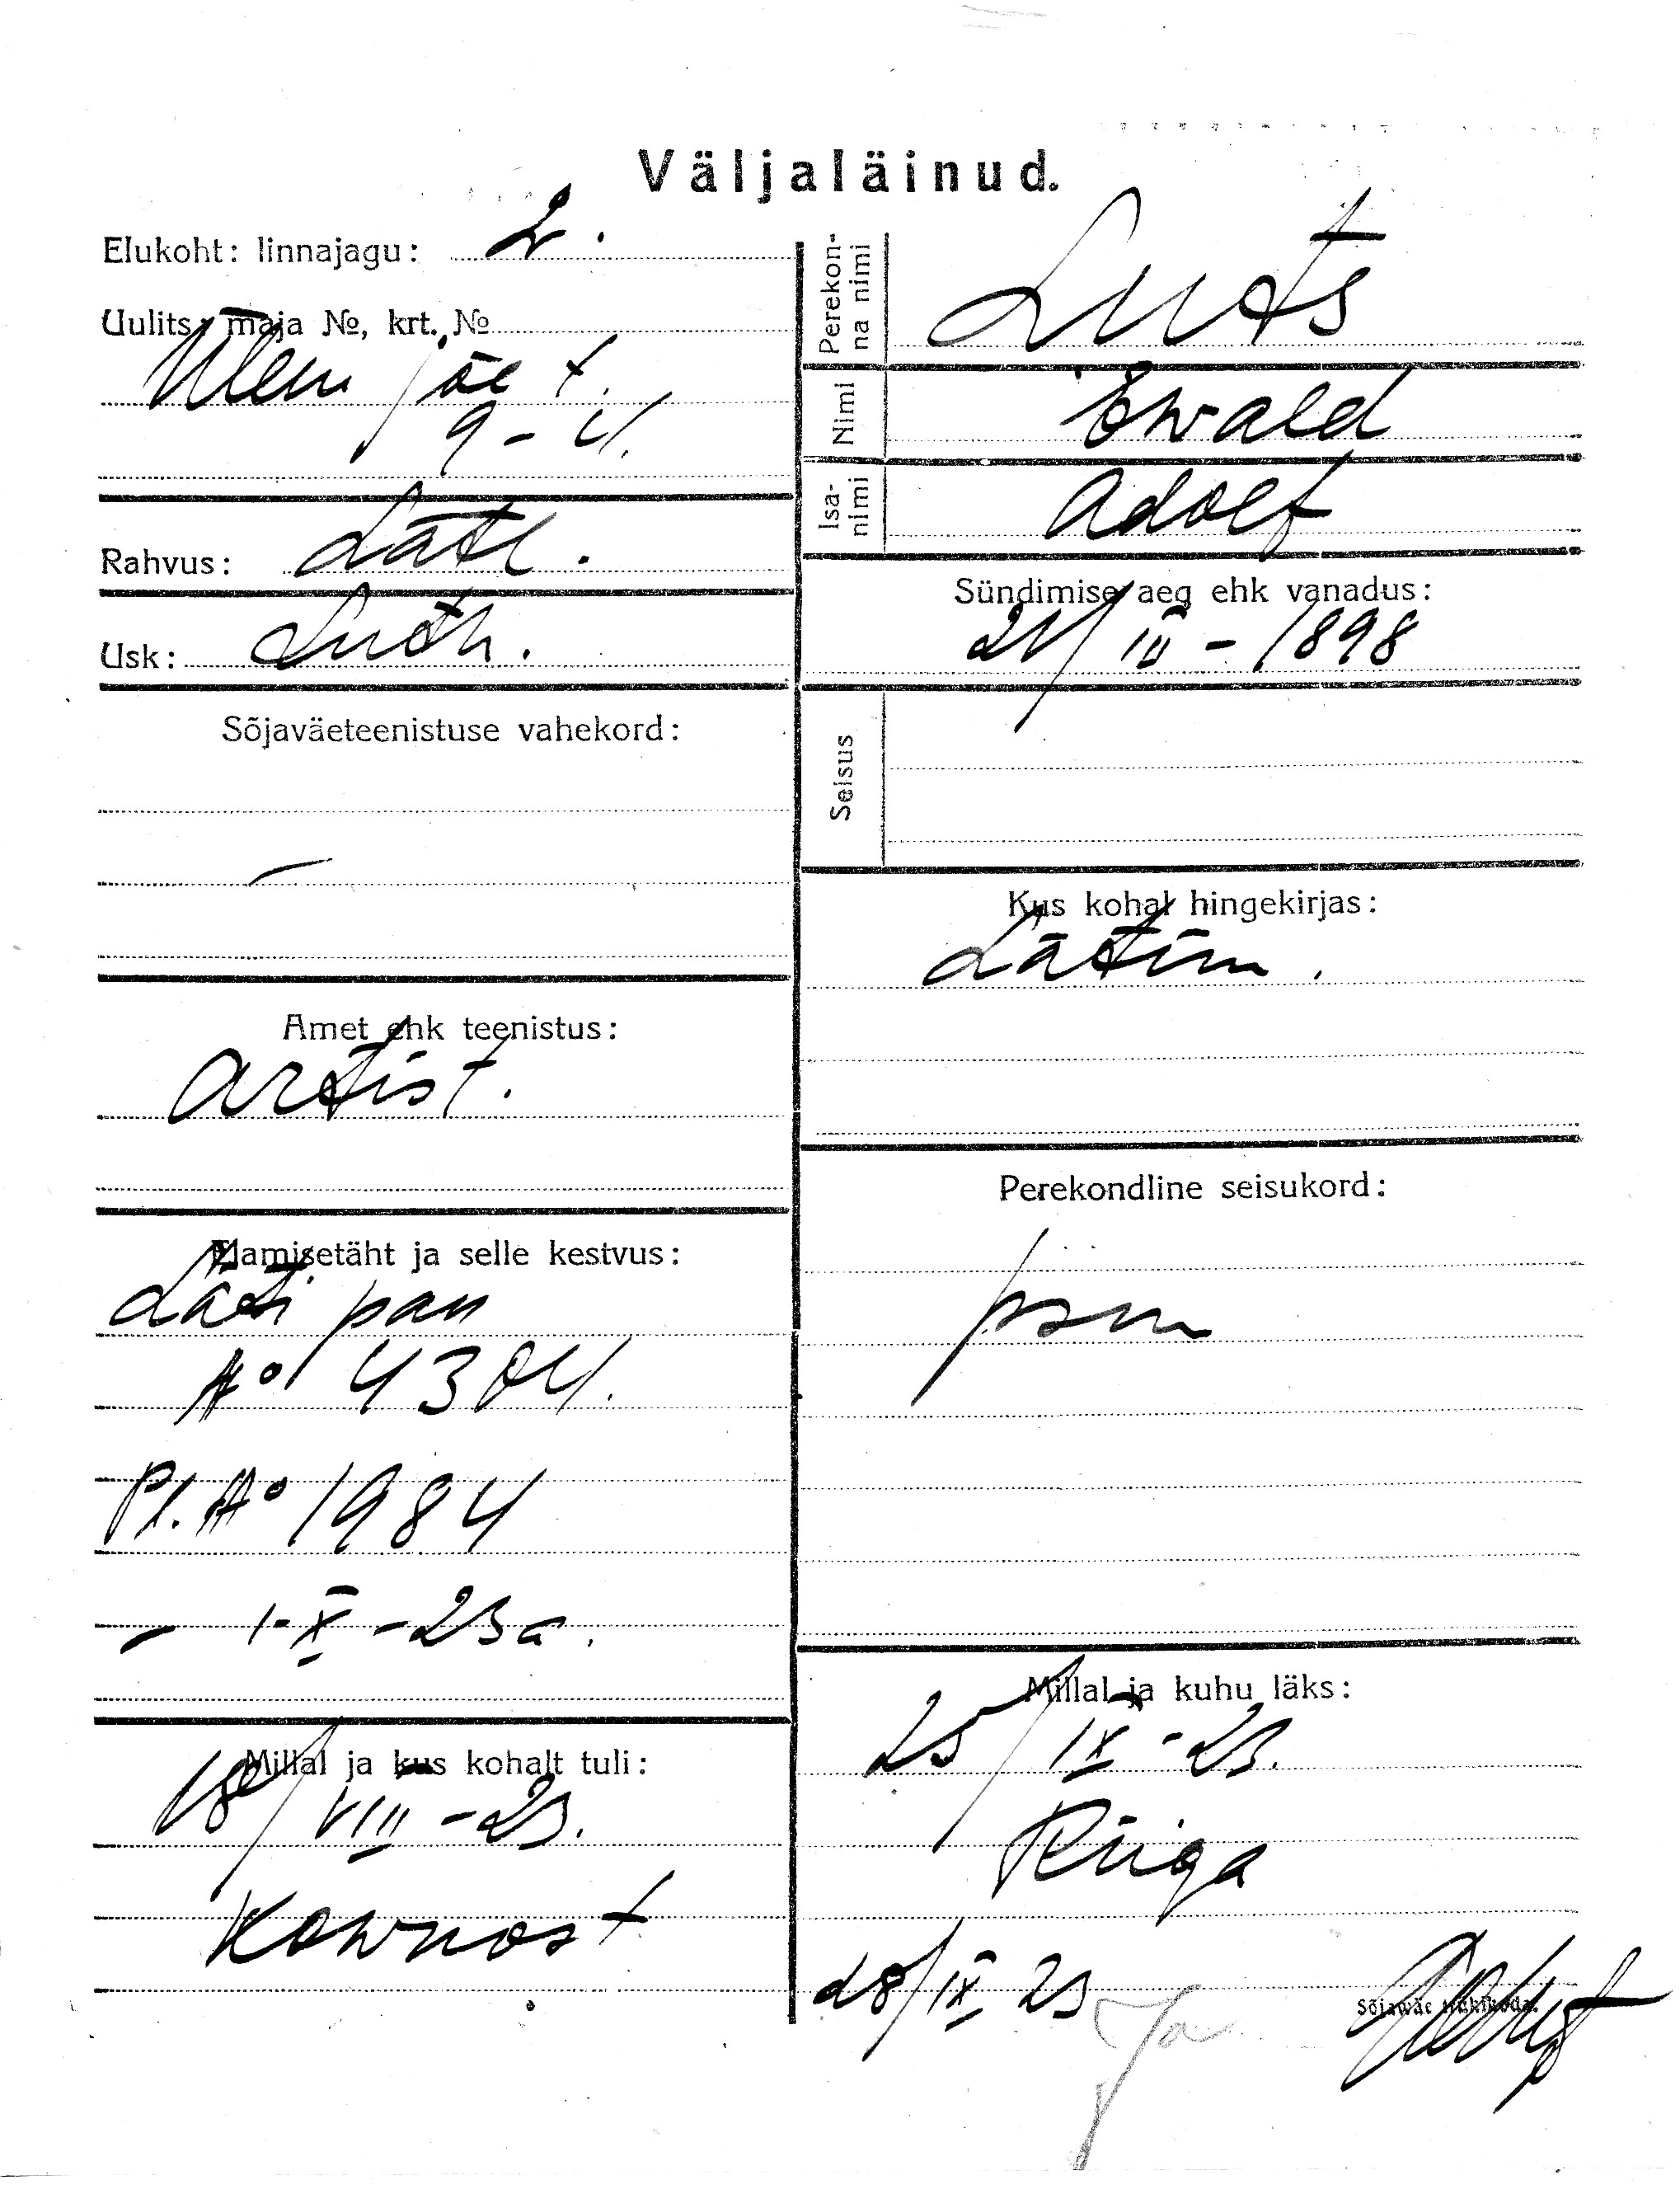 Väljaläinud.
Elukoht: linnajagu: 2.
Uulits, maja №, krt. №
jõe t.
9 – 4.
Rahvus: Lätl.
Usk: Luth.
Sõjaväeteenistuse vahekord:
–
Amet ehk teenistus:
Artist.
Elamisetäht ja selle kestvus:
Läti pass
№ 4304.
Pl. № 1984
– 1-X-23 a.
Millal ja kus kohalt tuli:
18/VIII-23.
Kownost
Perekonna nimi
Luts
Nimi
Ewald
Isanimi
Adolf
Sündimise aeg ehk vanadus:
21/III – 1898
Seisus
Kus kohal hingekirjas:
Lätim.
Perekondline seisukord:
Millal ja kuhu läks:
25/IX-23.
Riiga
28/IX 23
Sõjawäe trükikoda.